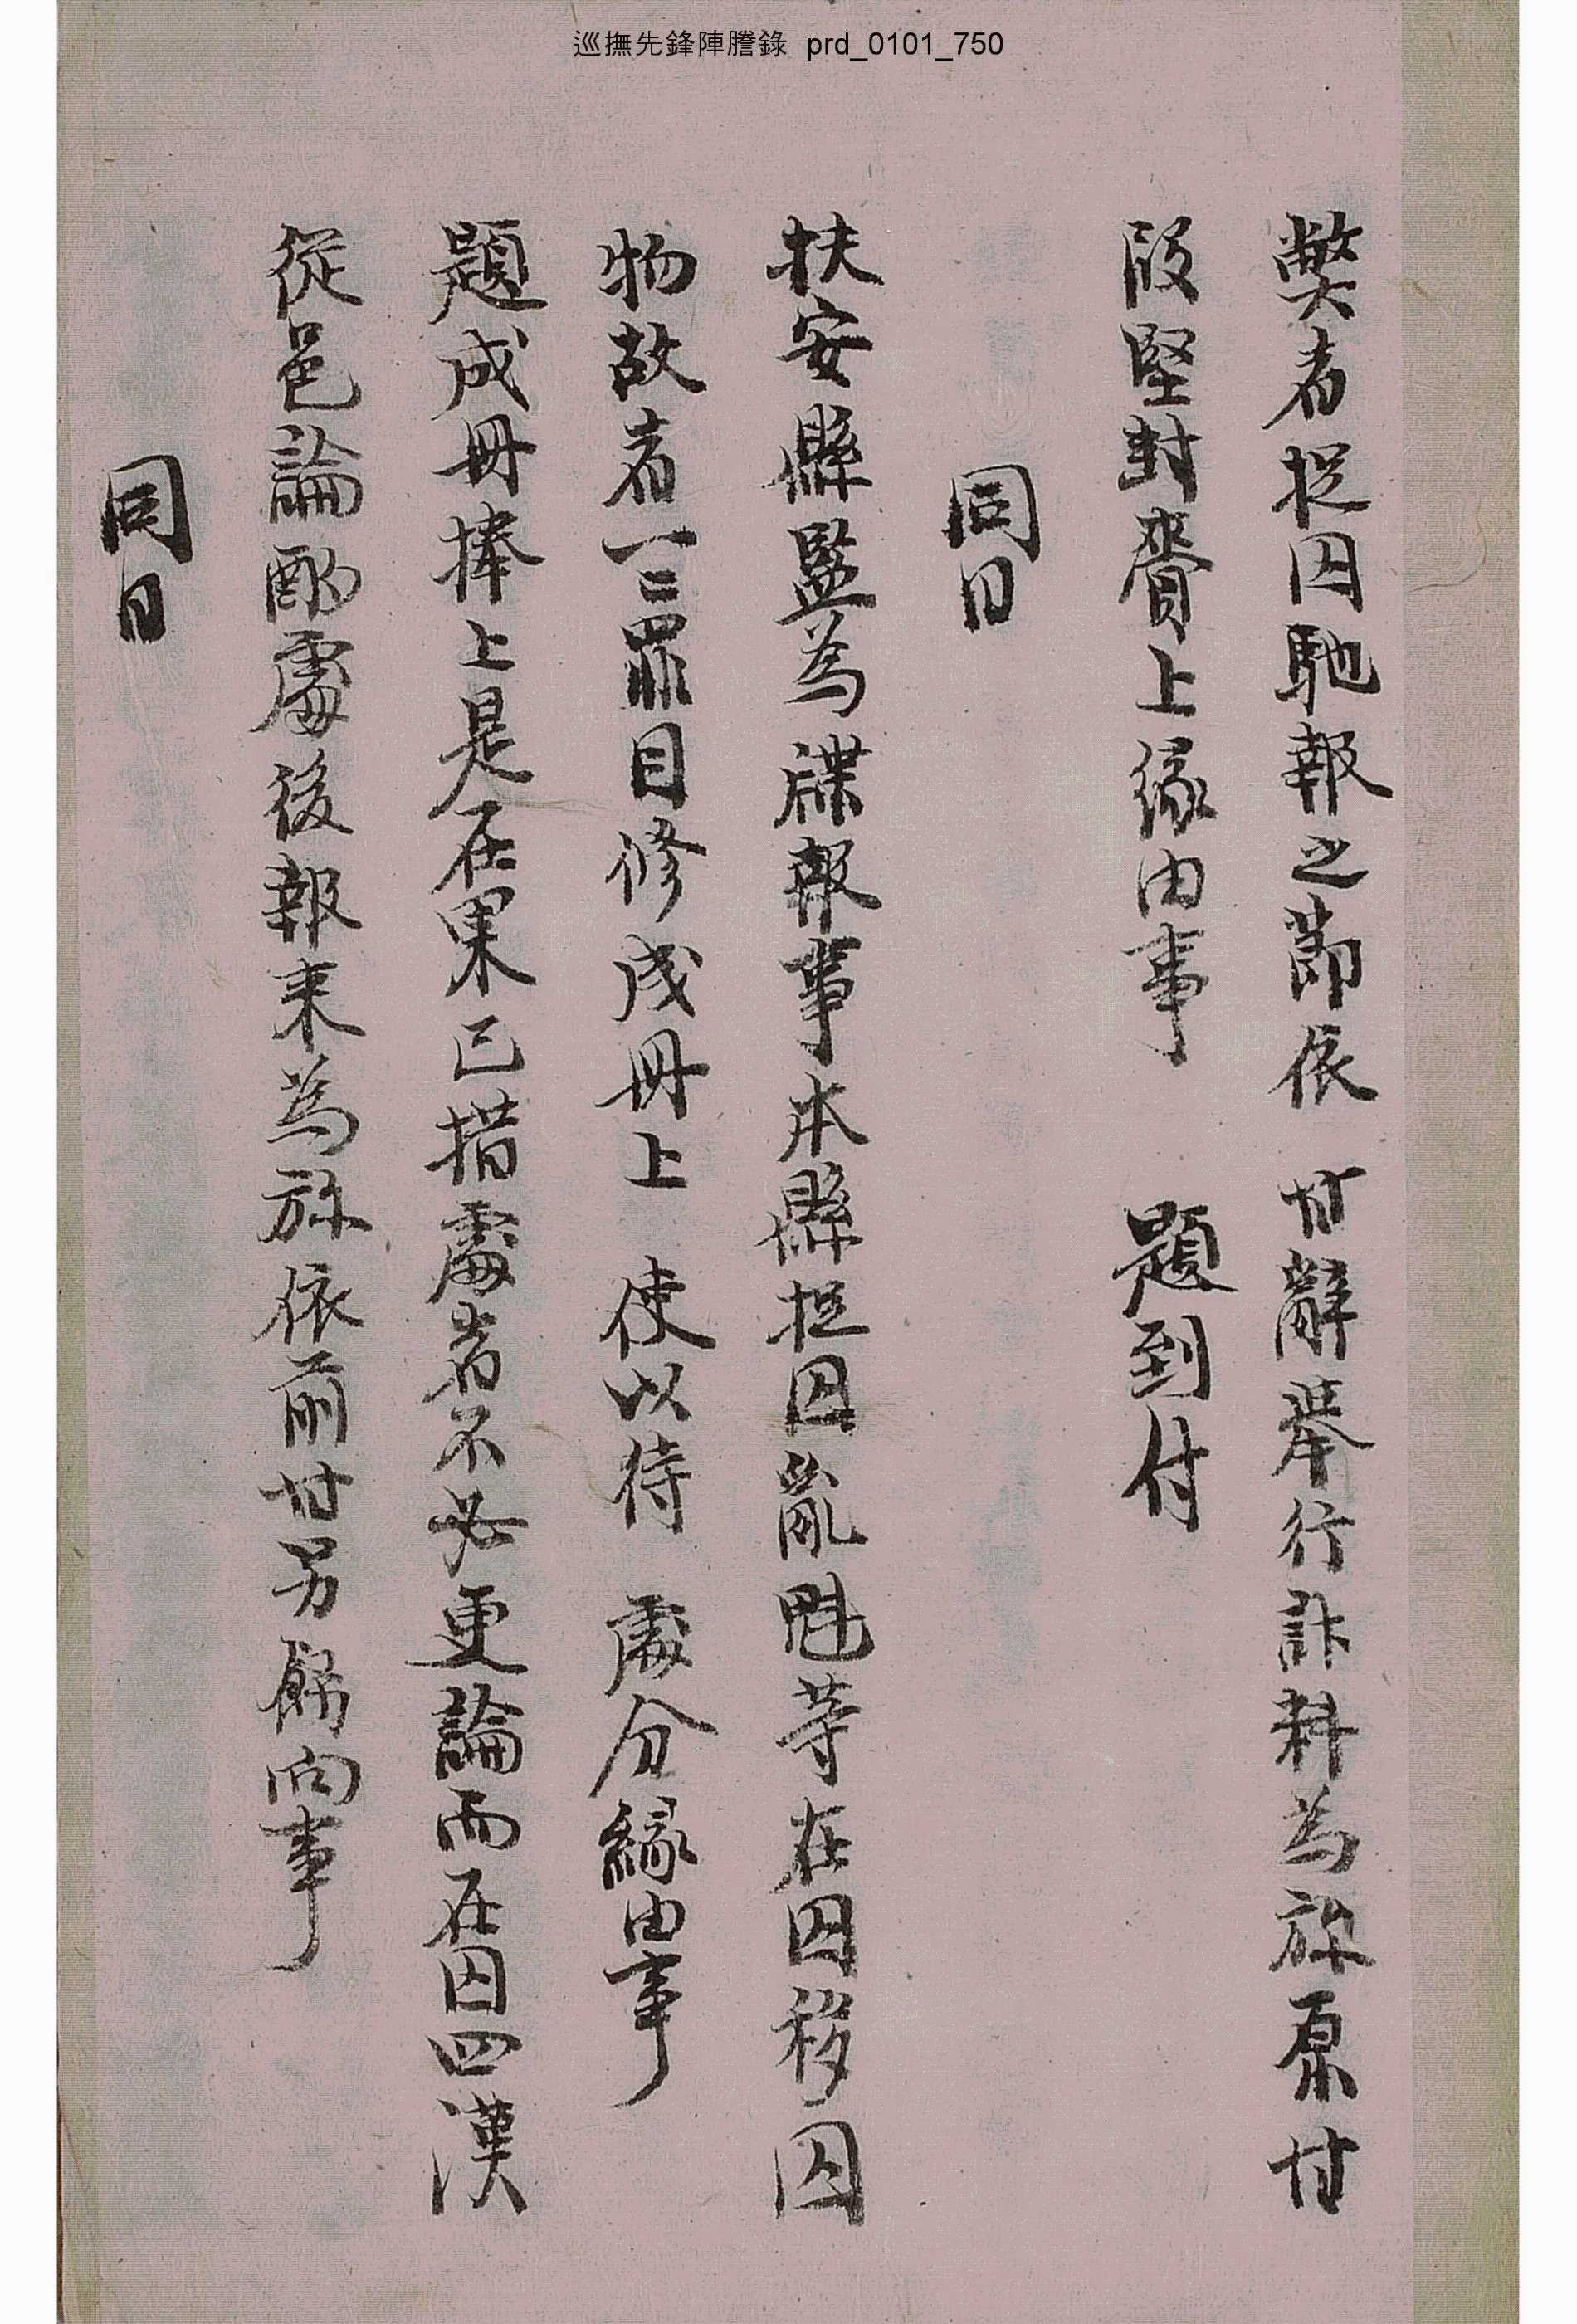 巡撫先鋒陣謄錄 prd_0101_750
弊者捉囚馳報之節依 甘辭擧行計料爲旀原甘
段堅封賫上緣由事 題到付
同日
扶安縣監爲牒報事本縣捉囚亂魁等在囚移囚
物故者一二罪目修成冊上 使以待 處分緣由事
題成冊捧上是在果已措處者不必更論而在囚四漢
從邑論酌處後報來爲旀依前甘另飭向事
同日